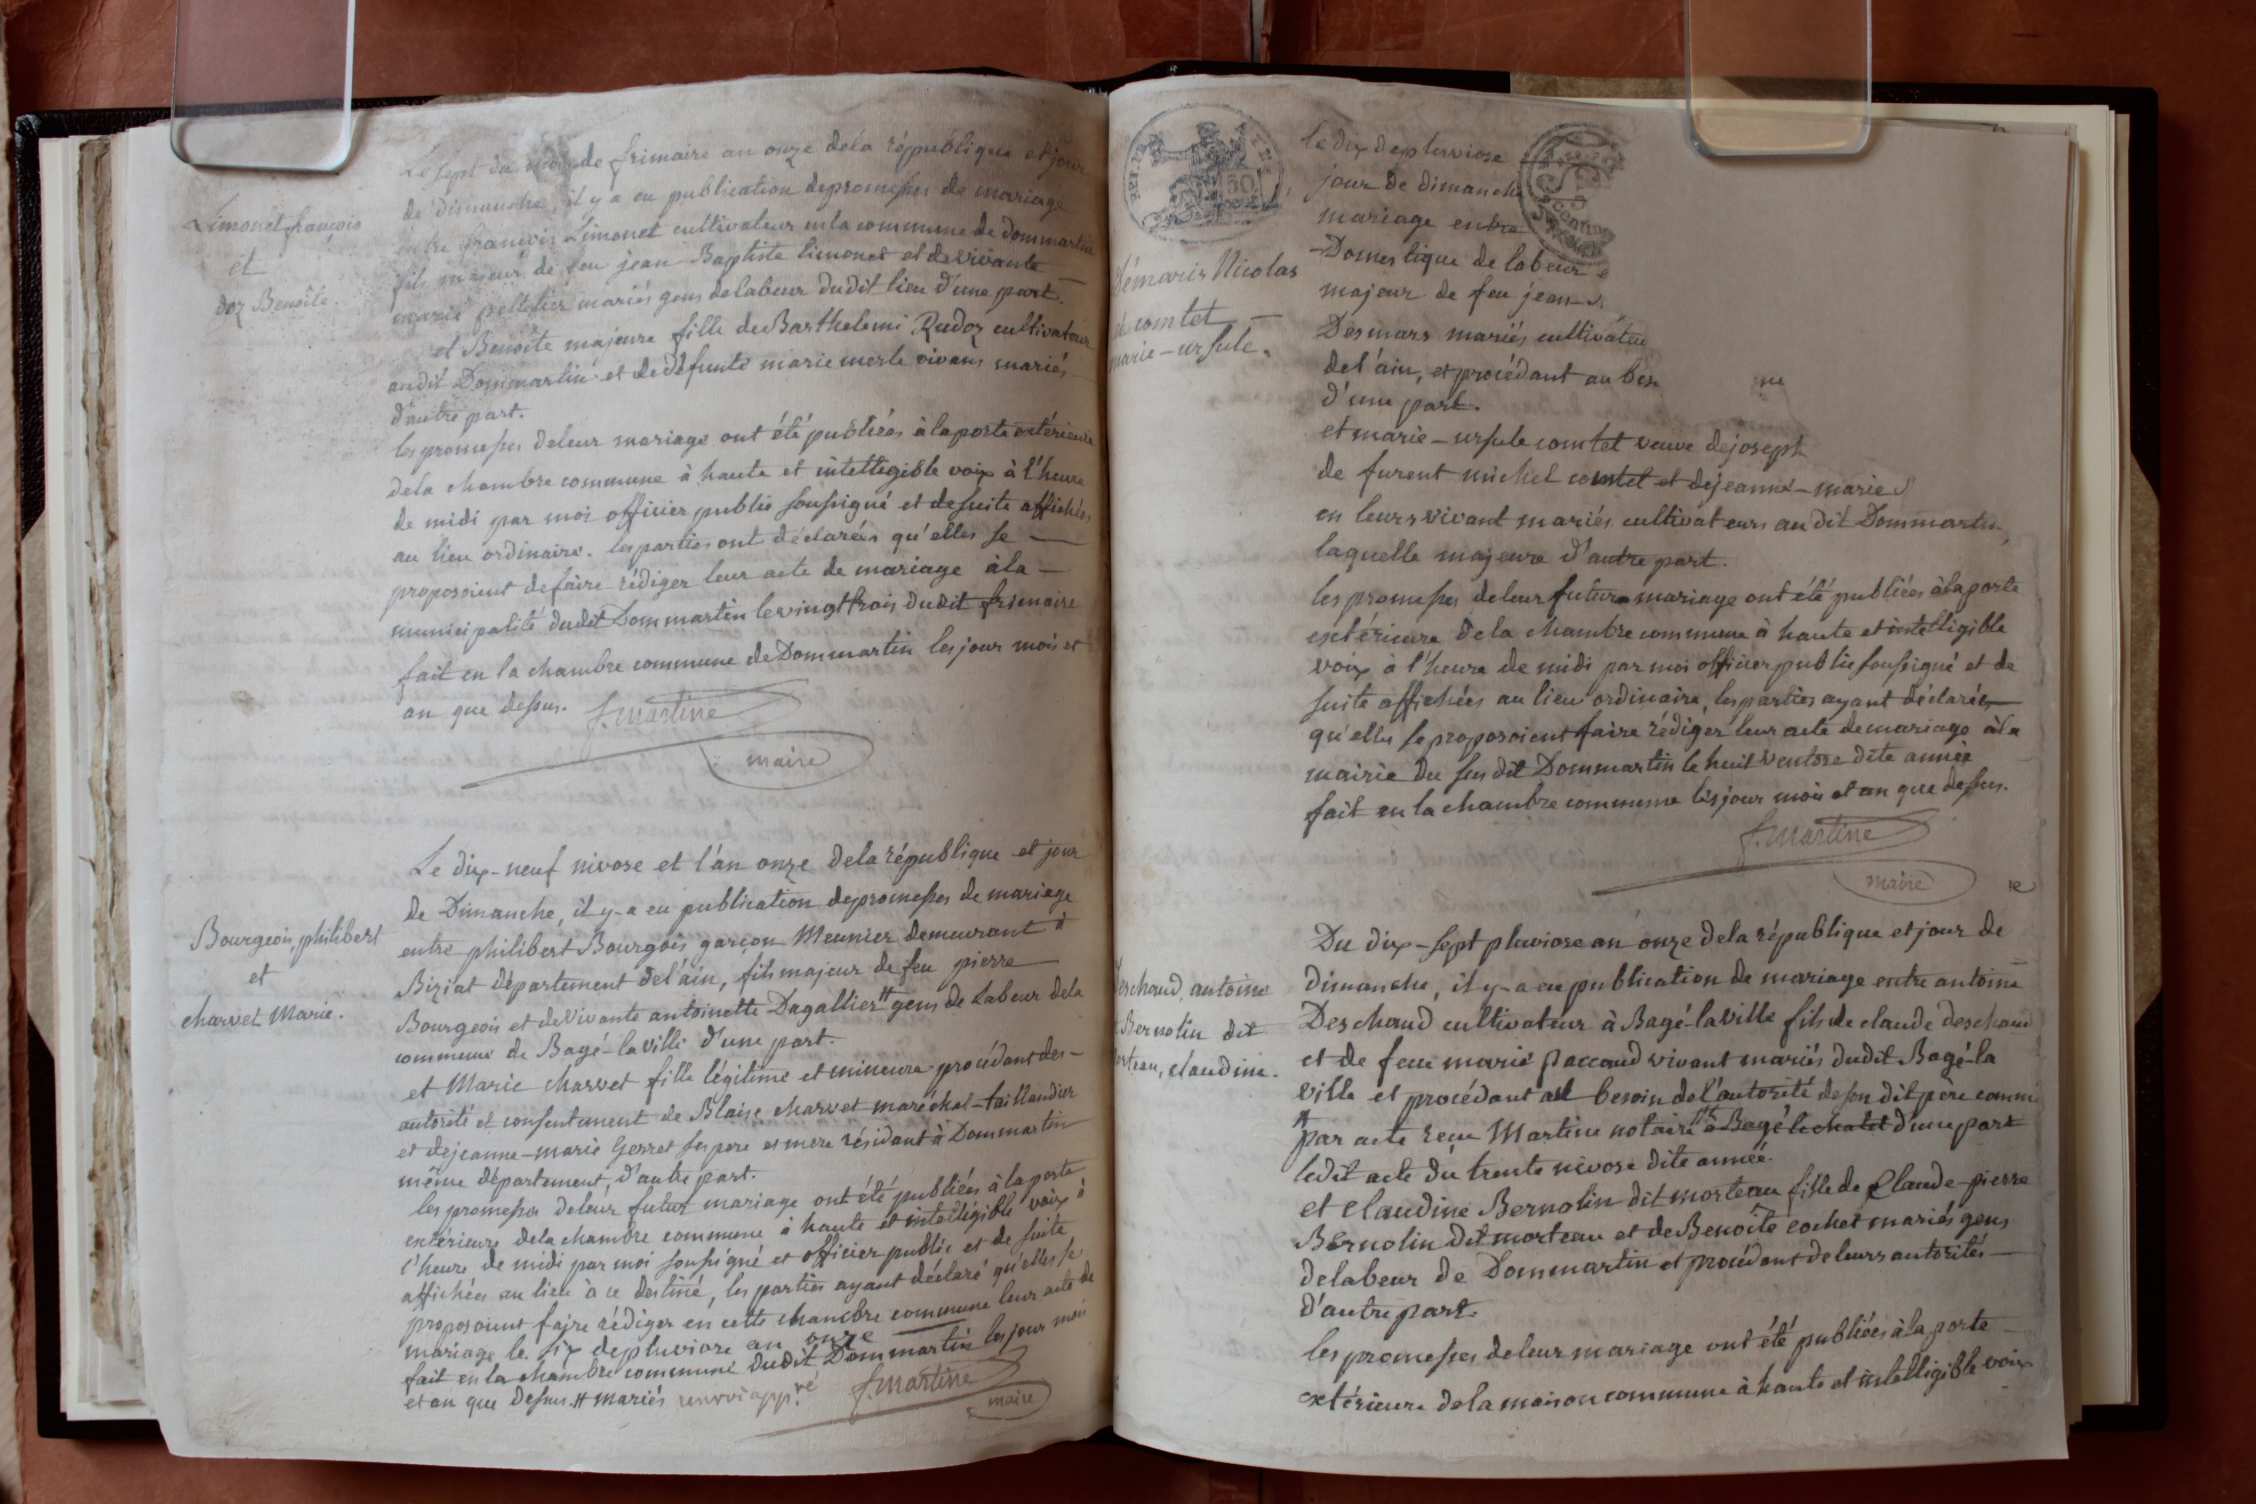 Limonet françois
et
doz Benoîte.
Le sept du mois de frimaire an onze de la république et jour
de dimanche, il y a eu publication de promesses de mariage
entre françois Limonet cultivateur en la commune de dommartin
fils majeur de feu jean Baptiste limonet et de vivante
marie pelletier mariés gens de labeur du dit lieu d'une part.
et Benoîte majeure fille de Barthelemi Rudoz cultivateur
au dit Dommartin et de defunte marie merle vivans mariés
d'autre part.
les promesses de leur mariage ont été publiées à la porte extérieure
de la chambre commune à haute et intelligible voix à l'heure
de midi par moi officier public soussigné et de suite affichées
au lieu ordinaire. les parties ont déclarées qu'elles se
proposoient de faire rédiger leur acte de mariage à la
municipalité dudit Dommartin le vingt trois dudit frimaire
fait en la chambre commune de Dommartin les jour mois et
an que dessus. f. martine
maire
Bourgeois, philibert
et
charvet Marie.
Le dix-neuf nivose et l'an onze de la république et jour
de Dimanche, il y-a eu publication de promesses de mariage
entre philibert Bourgois garçon Meunier demeurant à
Biziat département de l'ain, fils majeur de feu pierre
Bourgeois et de vivante antoinette Dagallier # gens de Labeur de la
commune de Bagé-la ville d'une part.
et Marie charvet fille légitime et mineure procédant des-
autorité et consentement de Blaise charvet maréchal-taillandier
et de jeanne-marie Gerret ses pere et mere résidant à Dommartin
même département, d'autre part.
les promesses de leur futur mariage ont été publiées à la porte
extérieure de la chambre commune à haute et intelligible voix à
l'heure de midi par moi soussigné et officier public et de suite
affichées au lieu à ce destiné, les parties ayant déclaré qu'elles se
proposoient faire rédiger en cette chambre commune leur acte de
mariage le six de pluviose an onze
fait en la chambre commune dudit Dommartin les jour mois
et an que dessus. # mariés renvoi appvé f. martine
maire
démaris Nicolas
et comtet
marie-ursule.
le dix de pluviose
jour de dimanche
mariage entre
Domestique de labeur
majeur de feu jean
Desmars mariés cultivateu
de l'ain, et procédant au bes
d'une part.
et marie-ursule comtet veuve de joseph
de furent michel comtet et de jeanne-marie
en leurs vivant mariés cultivateurs au dit Dommartin,
laquelle majeure d'autre part.
les promesses de leur future mariage ont été publiées à la porte
extérieure de la chambre commune à haute et intelligible
voix à l'heure de midi par moi officier public soussigné et de
suite affichées au lieu ordinaire, les parties ayant déclarées
qu'elles se proposoient faire rédiger leur acte de mariage à la
mairie du sus dit Dommartin le huit ventose dite année
fait en la chambre commune les jour mois et an que dessus.
f. martine
maire
Deschaud, antoine
Bernolin dit
morteau, claudine.
Du dix-sept pluviose an onze de la république et jour de
dimanche, il y-a eu publication de mariage entre antoine
Deschaud cultivateur à Bagé-la ville fils de claude deschaud
et de feue marie paccaud vivant mariés dudit Bagé-la
ville et procédant au besoin de l'autorité de son dit père comme
par acte reçu Martine notaire à Bagé le chatel d'une part
ledit acte du trente nivose dite année.
et claudine Bernolin dit morteau fille de Claude-pierre
Bernolin dit morteau et de Benoîte cochet mariés gens
de labeur de Dommartin et procédant de leurs autorités
d'autre part.
les promesses de leur mariage ont été publiées à la porte
extérieure de la maison commune à haute et intelligible voix